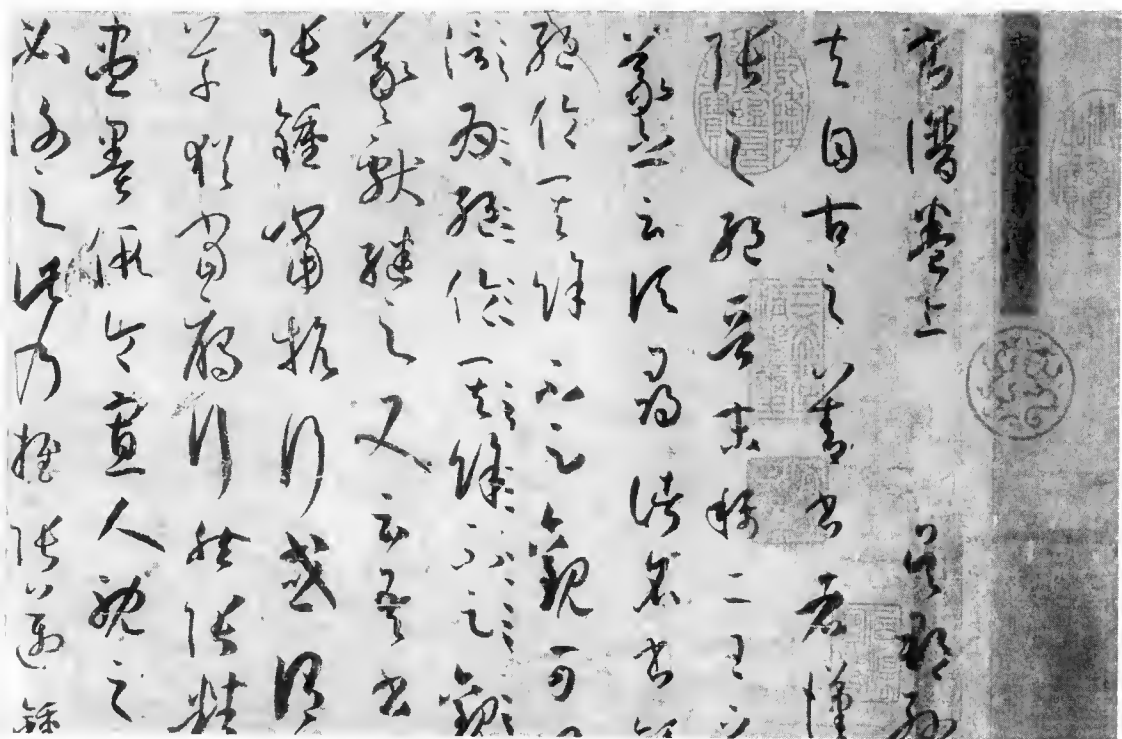 書譜卷上 吳郡孫
夫自古之善書者漢
張之絕晉末稱二王之
羲之云頃尋諸名書
絕倫其餘不足觀可
為絕倫其餘不足觀
羲獻繼之又云吾書
張鍾當抗行或謂
草猶當鴈行然張精
盡墨假令寡人耽之
必謝之此乃推張邁鍾